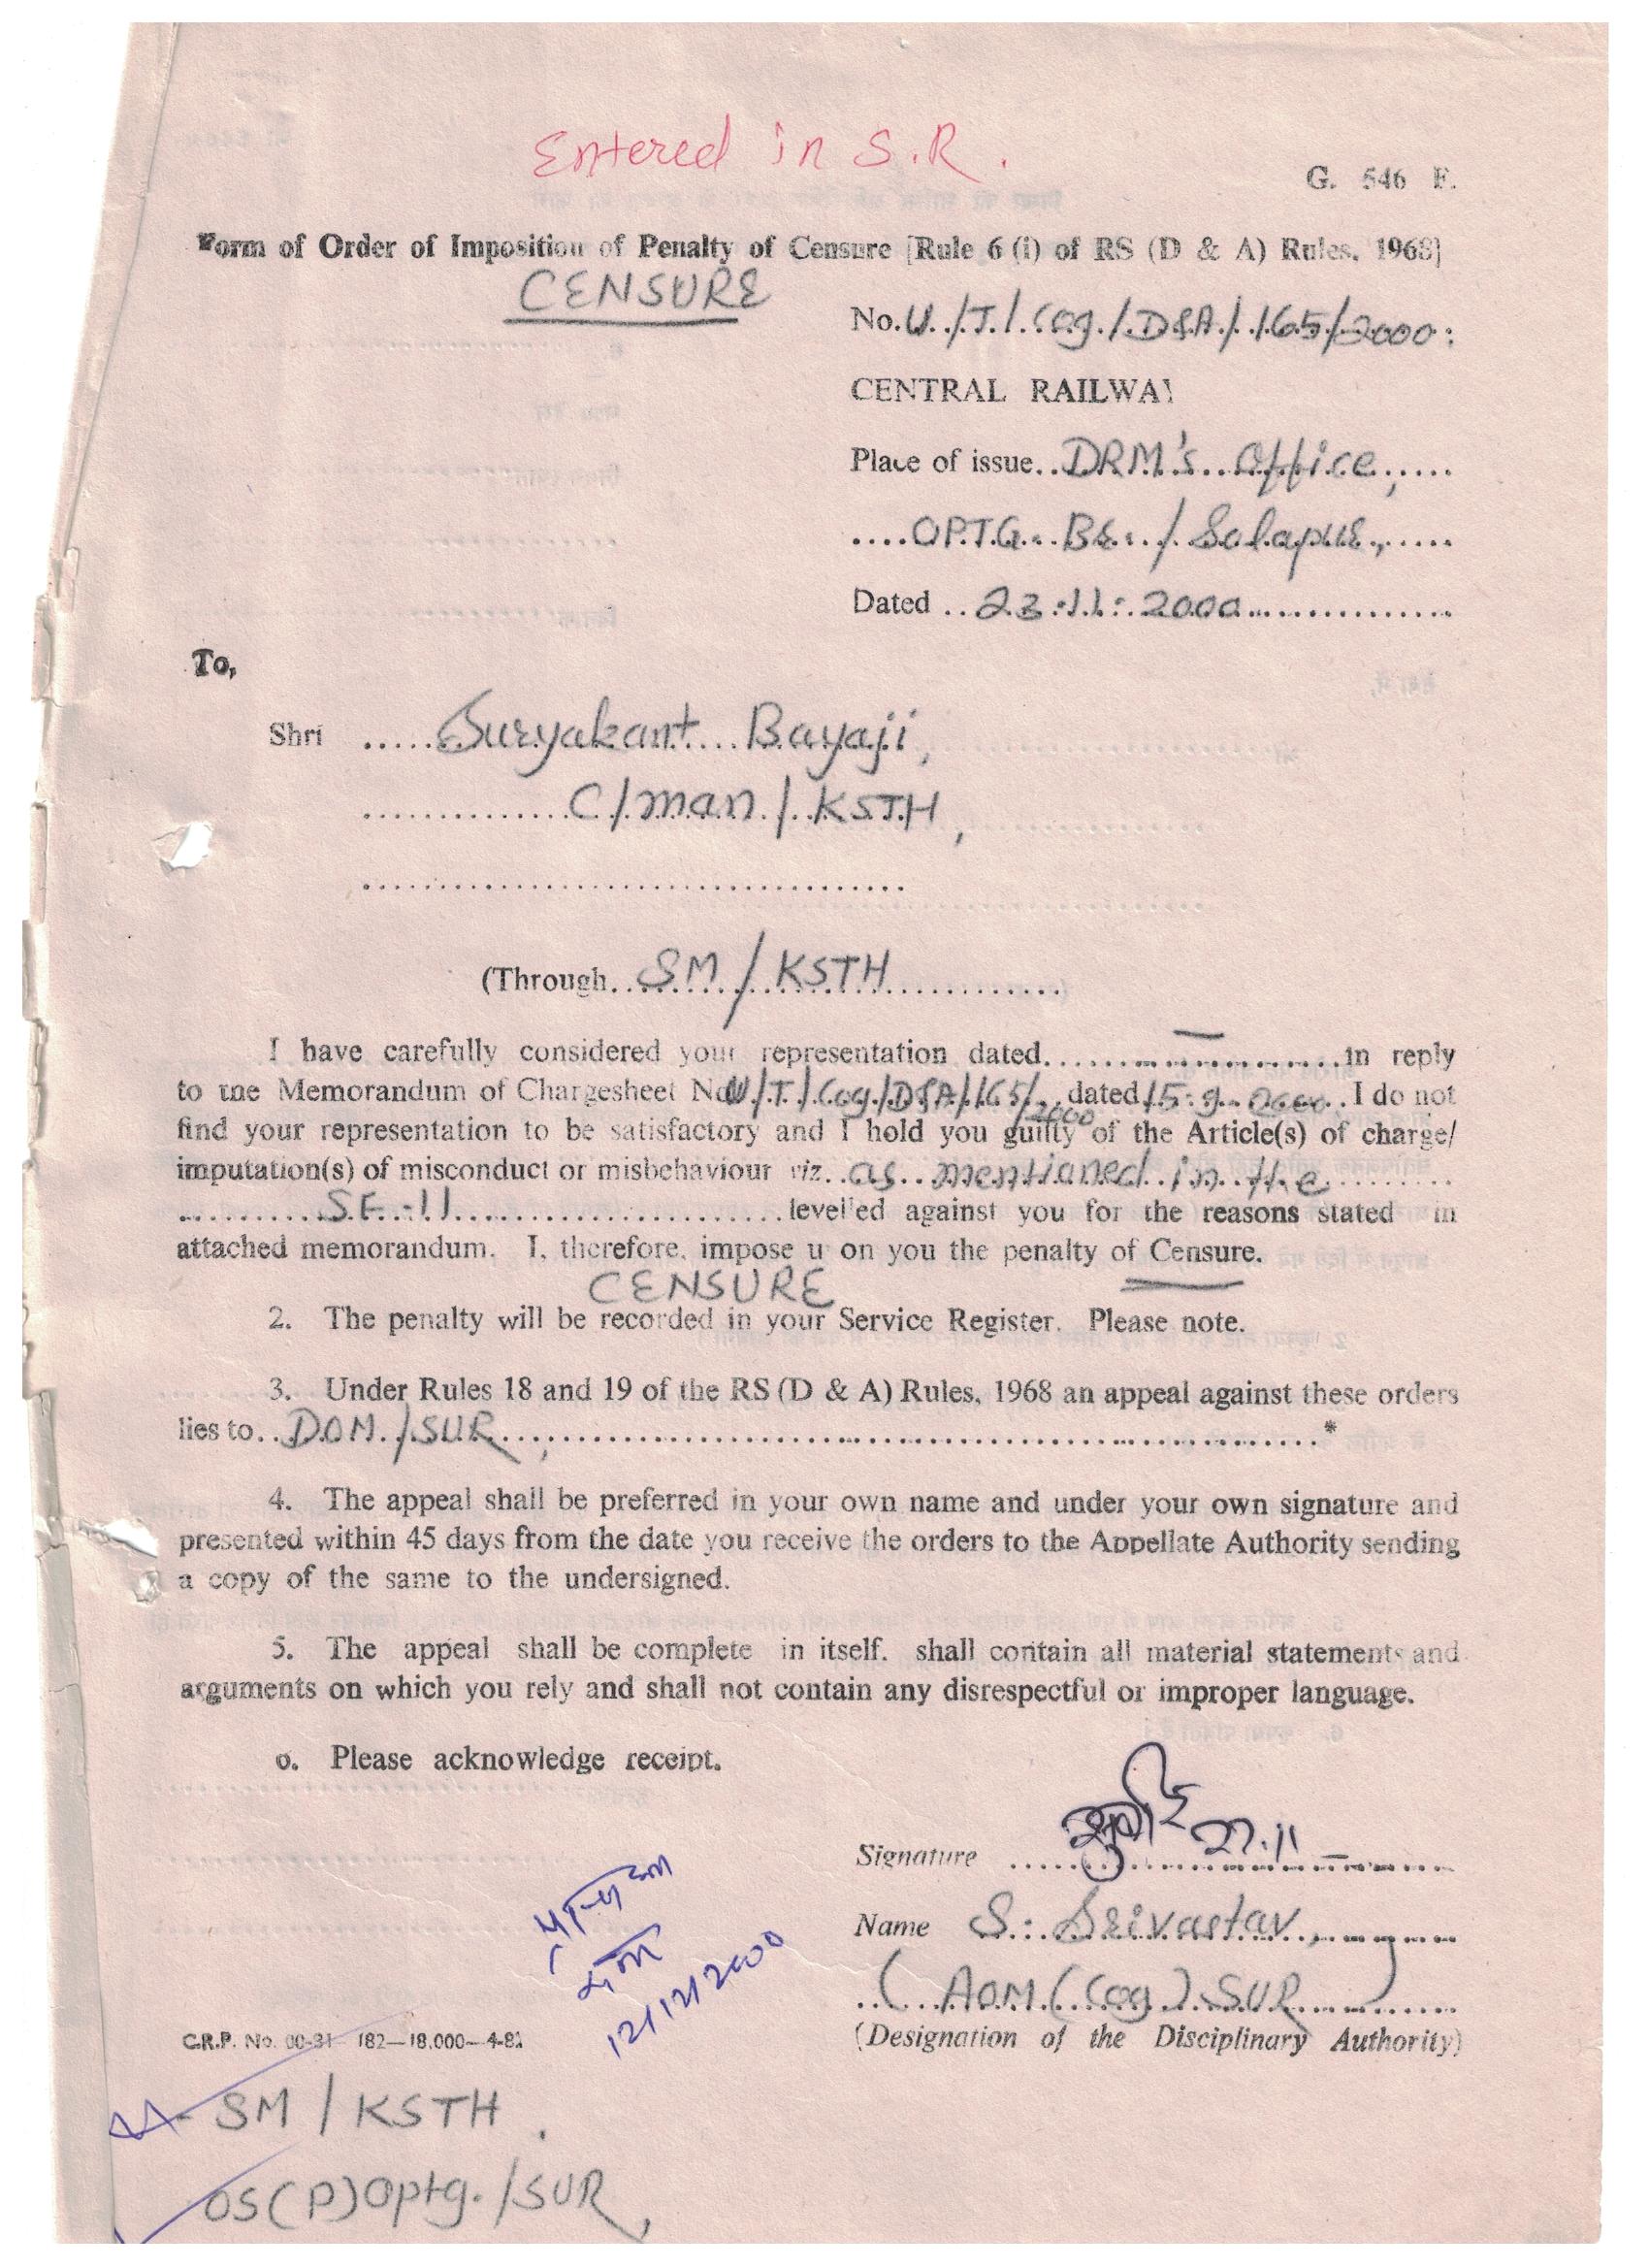 Entered in S.R.
G. 546 F.
Form of Order of Imposition of Penalty of Censure [Rule 6 (i) of RS (D & A) Rules, 1968]
CENSURE
No. U/T/Cog/D&A/165/2000.
CENTRAL RAILWAY
Place of issue DRM's Office,
OPTG. Br./Solapur,
Dated 23.11.2000
To,
Shri Suryakant Bayaji,
C/man/KSTH,
(Through SM/KSTH
I have carefully considered your representation dated — in reply
to the Memorandum of Chargesheet No U/T/Cog/D&A/165/2000 dated 15.9.2000. I do not
find your representation to be satisfactory and I hold you guilty of the Article(s) of charge/
imputation(s) of misconduct or misbehaviour viz. as mentioned in the
SF-11 levelled against you for the reasons stated in
attached memorandum. I, therefore, impose u on you the penalty of Censure.
CENSURE
2. The penalty will be recorded in your Service Register. Please note.
3. Under Rules 18 and 19 of the RS (D & A) Rules, 1968 an appeal against these orders
lies to DOM/SUR, *
4. The appeal shall be preferred in your own name and under your own signature and
presented within 45 days from the date you receive the orders to the Appellate Authority sending
a copy of the same to the undersigned.
5. The appeal shall be complete in itself. shall contain all material statements and
arguments on which you rely and shall not contain any disrespectful or improper language.
6. Please acknowledge receipt.
Signature 27.11
Name S. Srivastav,
(AOM (Cog) SUR)
(Designation of the Disciplinary Authority)
12/12/2000
C.R.P. No. 00-31 182—18,000—4-81
SM/KSTH.
OS(P)Optg./SUR,